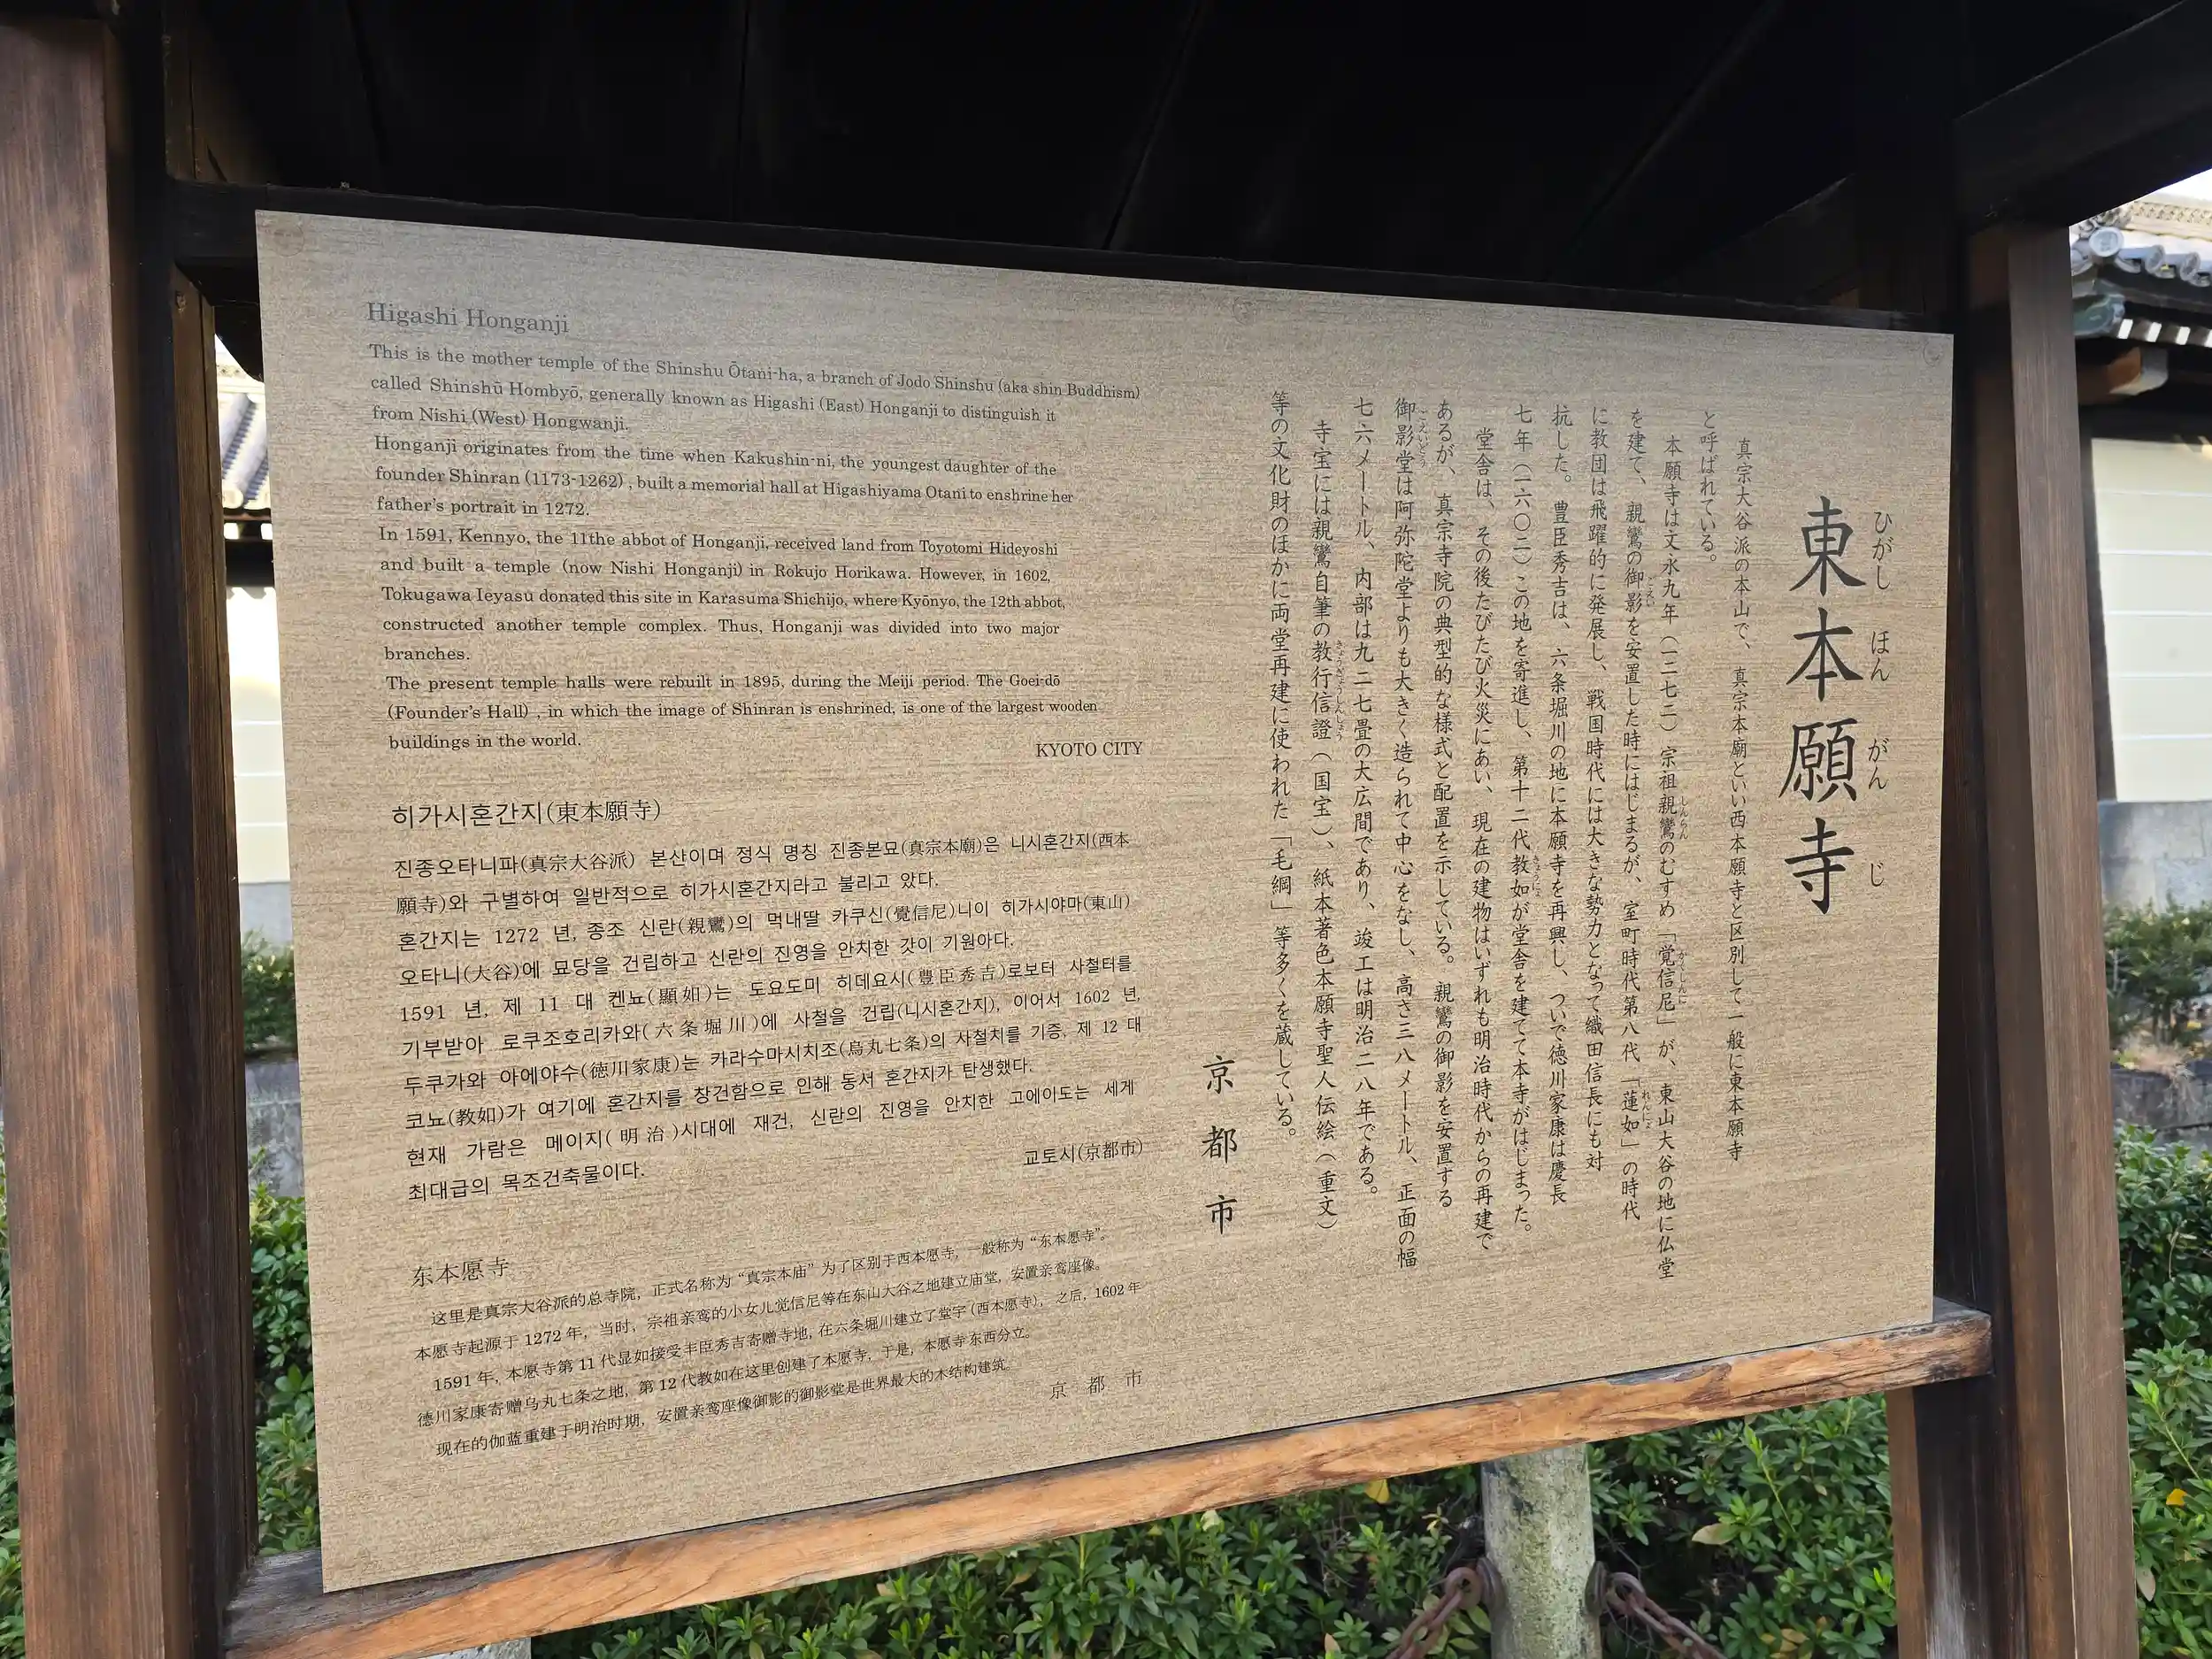 Higashi Honganji
This is the mother temple of the Shinshu Ōtani-ha, a branch of Jodo Shinshu (aka shin Buddhism)
called Shinshū Hombyō, generally known as Higashi (East) Honganji to distinguish it
from Nishi (West) Hongwanji.
Honganji originates from the time when Kakushin-ni, the youngest daughter of the
founder Shinran (1173-1262) , built a memorial hall at Higashiyama Otani to enshrine her
father's portrait in 1272.
In 1591, Kennyo, the 11the abbot of Honganji, received land from Toyotomi Hideyoshi
and built a temple (now Nishi Honganji) in Rokujo Horikawa. However, in 1602,
Tokugawa Ieyasu donated this site in Karasuma Shichijo, where Kyōnyo, the 12th abbot,
constructed another temple complex. Thus, Honganji was divided into two major
branches.
The present temple halls were rebuilt in 1895, during the Meiji period. The Goei-dō
(Founder's Hall) , in which the image of Shinran is enshrined, is one of the largest wooden
buildings in the world.
KYOTO CITY
히가시혼간지(東本願寺)
진종오타니파(真宗大谷派) 본산이며 정식 명칭 진종본묘(真宗本廟)은 니시혼간지(西本
願寺)와 구별하여 일반적으로 히가시혼간지라고 불리고 았다.
혼간지는 1272 년, 종조 신란(親鸞)의 먹내딸 카쿠신(覺信尼)니이 히가시야마(東山)
오타니(大谷)에 묘당을 건립하고 신란의 진영을 안치한 갓이 기원아다.
1591 년, 제 11 대 켄뇨(顯如)는 도요도미 히데요시(豊臣秀吉)로보터 사철터를
기부받아 로쿠조호리카와(六条堀川)에 사철을 건립(니시혼간지), 이어서 1602 년,
두쿠가와 아에야수(徳川家康)는 카라수마시치조(烏丸七条)의 사철치를 기증, 제 12 대
코뇨(教如)가 여기에 혼간지를 창건함으로 인해 동서 혼간지가 탄생했다.
현재 가람은 메이지(明治)시대에 재건, 신란의 진영을 안치한 고에아도는 세게
최대급의 목조건축물이다.
교토시(京都市)
东本愿寺
这里是真宗大谷派的总寺院，正式名称为“真宗本庙”为了区别于西本愿寺，一般称为“东本愿寺”。
本愿寺起源于 1272 年，当时，宗祖亲鸾的小女儿觉信尼等在东山大谷之地建立庙堂，安置亲鸾座像。
1591 年，本愿寺第 11 代显如接受丰臣秀吉寄赠寺地，在六条堀川建立了堂宇（西本愿寺），之后，1602 年
德川家康寄赠乌丸七条之地，第 12 代教如在这里创建了本愿寺，于是，本愿寺东西分立。
现在的伽蓝重建于明治时期，安置亲鸾座像御影的御影堂是世界最大的木结构建筑。
京 都 市
東本願寺
ひがし ほん がん じ
真宗大谷派の本山で、真宗本廟といい西本願寺と区別して一般に東本願寺
と呼ばれている。
本願寺は文永九年（一二七二）宗祖親鸞のむすめ「覚信尼」が、東山大谷の地に仏堂
を建て、親鸞の御影を安置した時にはじまるが、室町時代第八代「蓮如」の時代
に教団は飛躍的に発展し、戦国時代には大きな勢力となって織田信長にも対
抗した。豊臣秀吉は、六条堀川の地に本願寺を再興し、ついで徳川家康は慶長
七年（一六〇二）この地を寄進し、第十二代教如が堂舎を建てて本寺がはじまった。
堂舎は、その後たびたび火災にあい、現在の建物はいずれも明治時代からの再建で
あるが、真宗寺院の典型的な様式と配置を示している。親鸞の御影を安置する
御影堂は阿弥陀堂よりも大きく造られて中心をなし、高さ三八メートル、正面の幅
七六メートル、内部は九二七畳の大広間であり、竣工は明治二八年である。
寺宝には親鸞自筆の教行信證（国宝）、紙本著色本願寺聖人伝絵（重文）
等の文化財のほかに両堂再建に使われた「毛綱」等多くを蔵している。
京都市